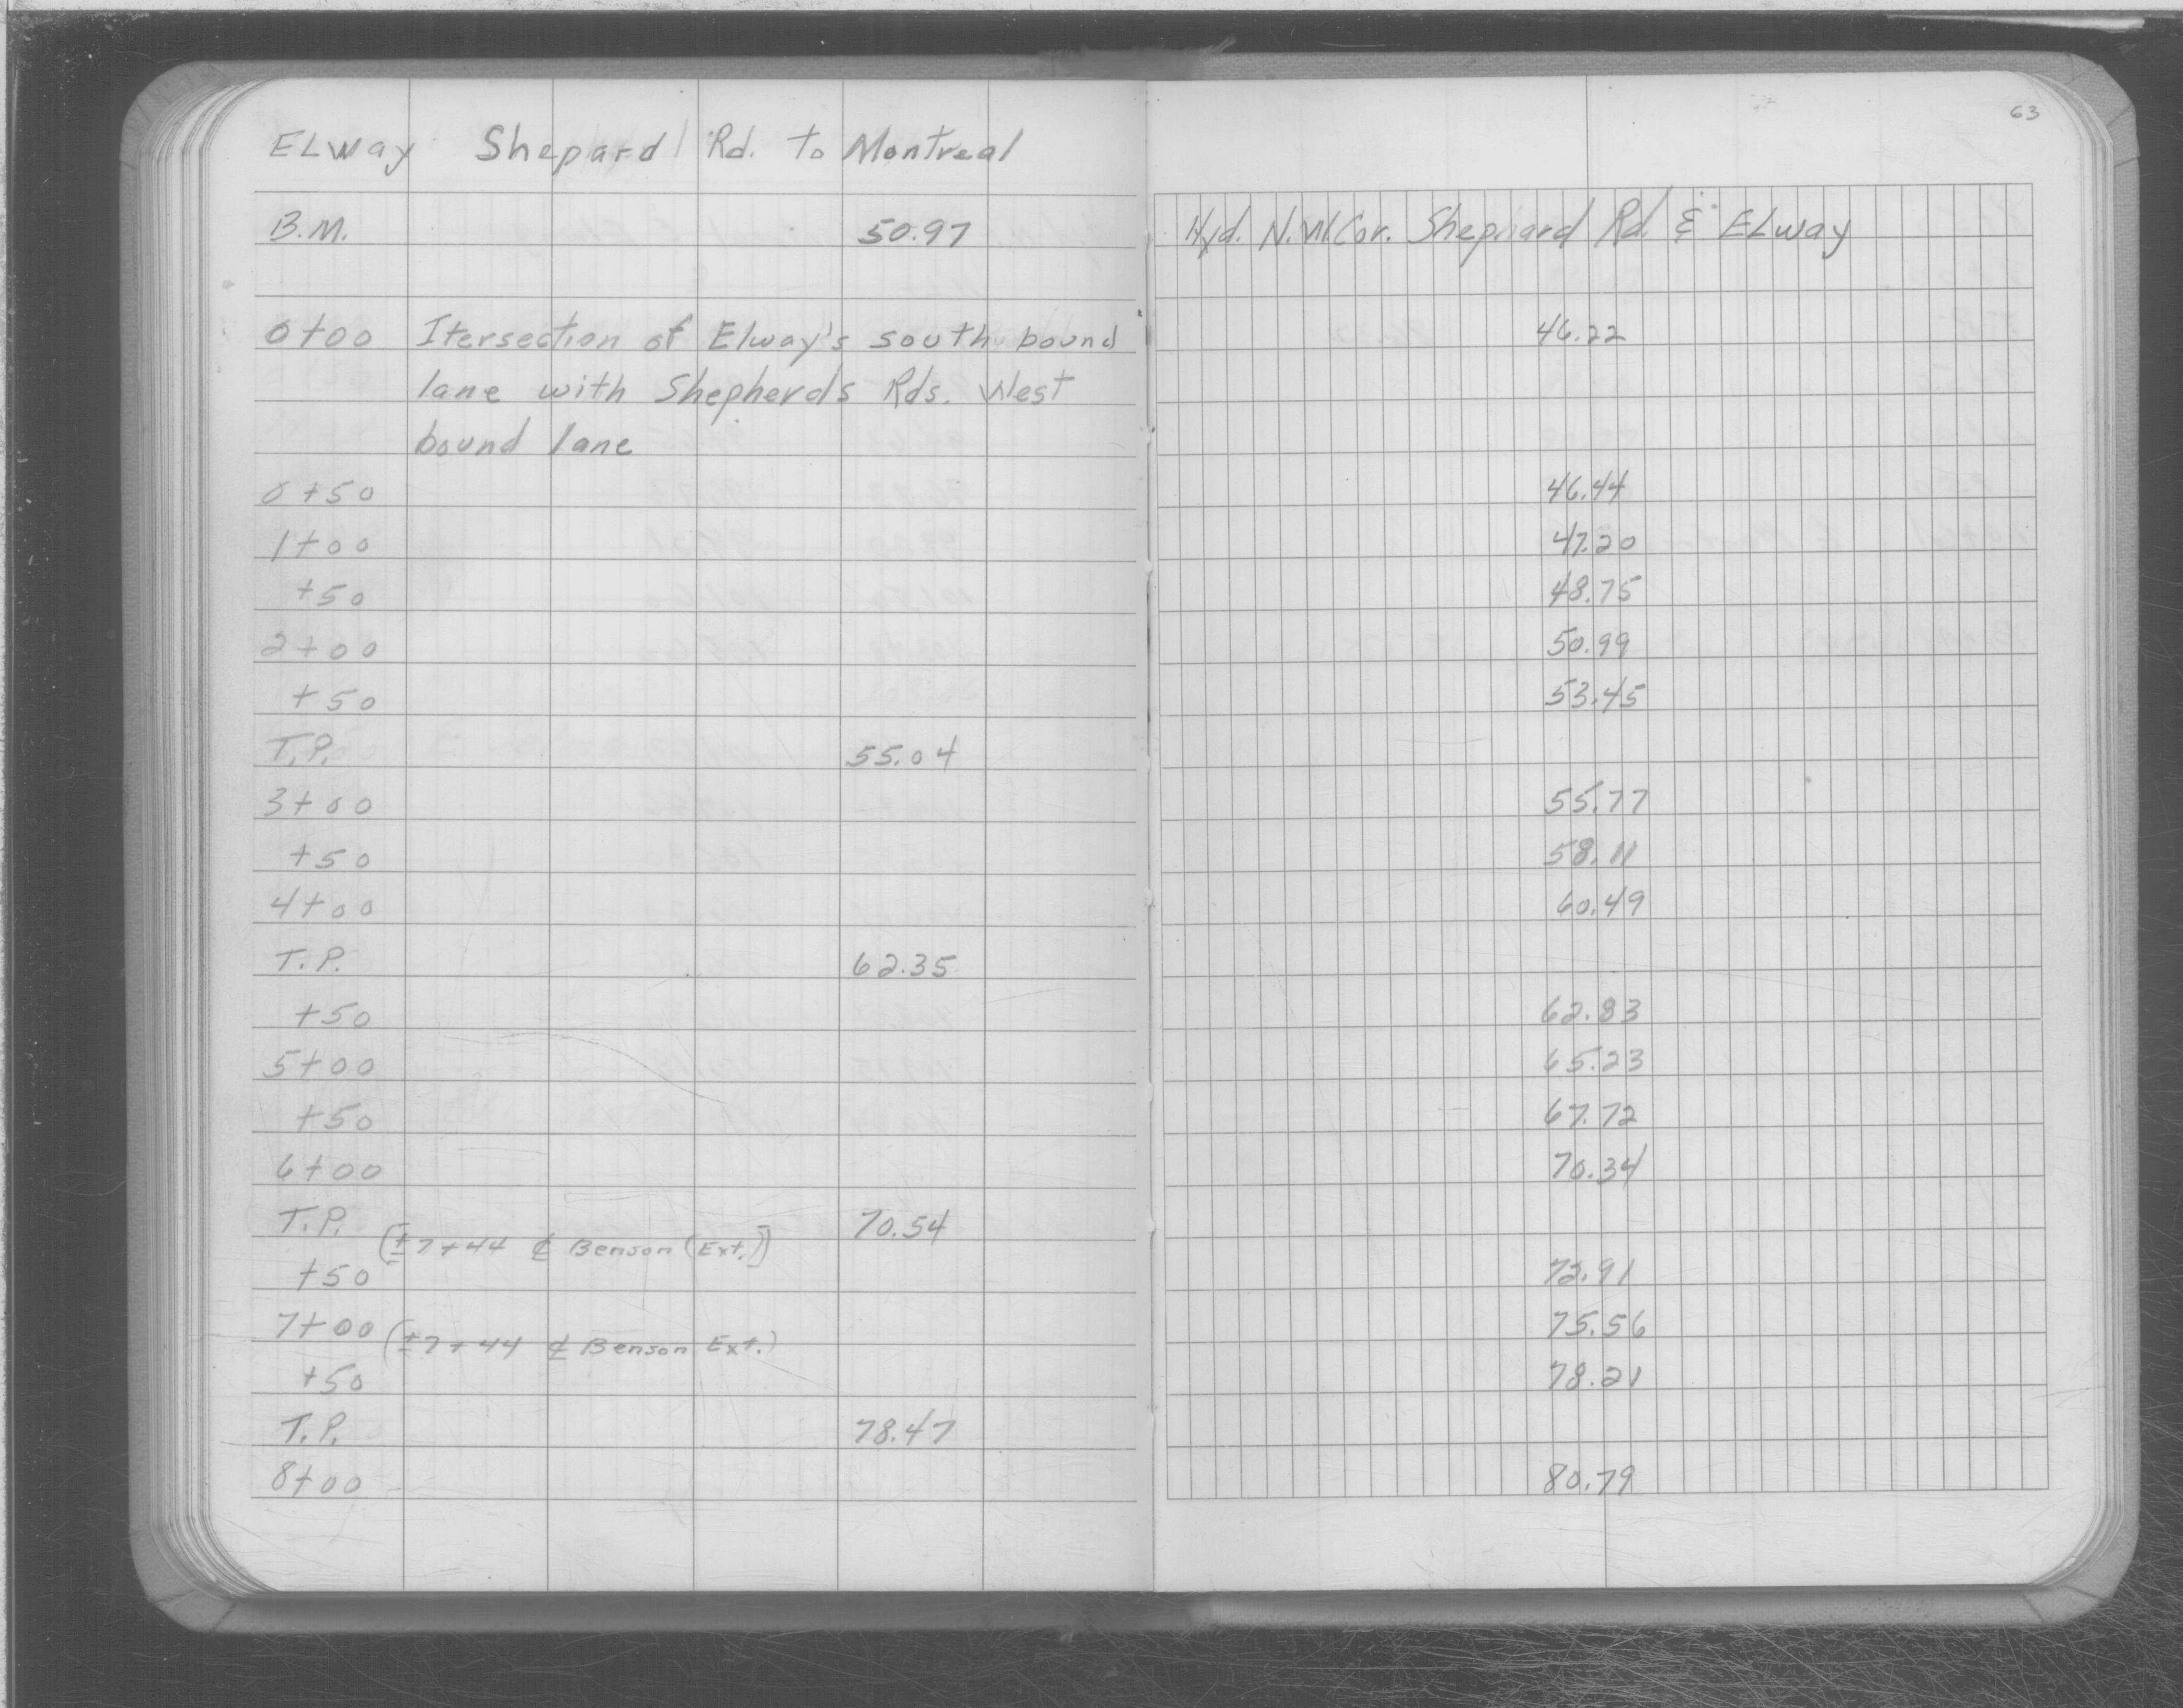 63
ELway Shepard Rd. to Montreal
B.M. 50.97 Hyd. N.W. Cor. Shephard Rd. & ELway
0+00 Itersection of Elway's south bound 46.22
lane with Shepherds Rds. West
bound lane
0+50 46.44
1+00 47.20
+50 48.75
2+00 50.99
+50 53.45
T.P. 55.04
3+00 55.77
+50 58.11
4+00 60.49
T.P. 62.35
+50 62.83
5+00 65.23
+50 67.72
6+00 70.34
T.P. 70.54
(±7+44 ℄ Benson (Ext.))
+50 72.91
7+00 75.56
(±7+44 ℄ Benson Ext.)
+50 78.21
T.P. 78.47
8+00 80.79